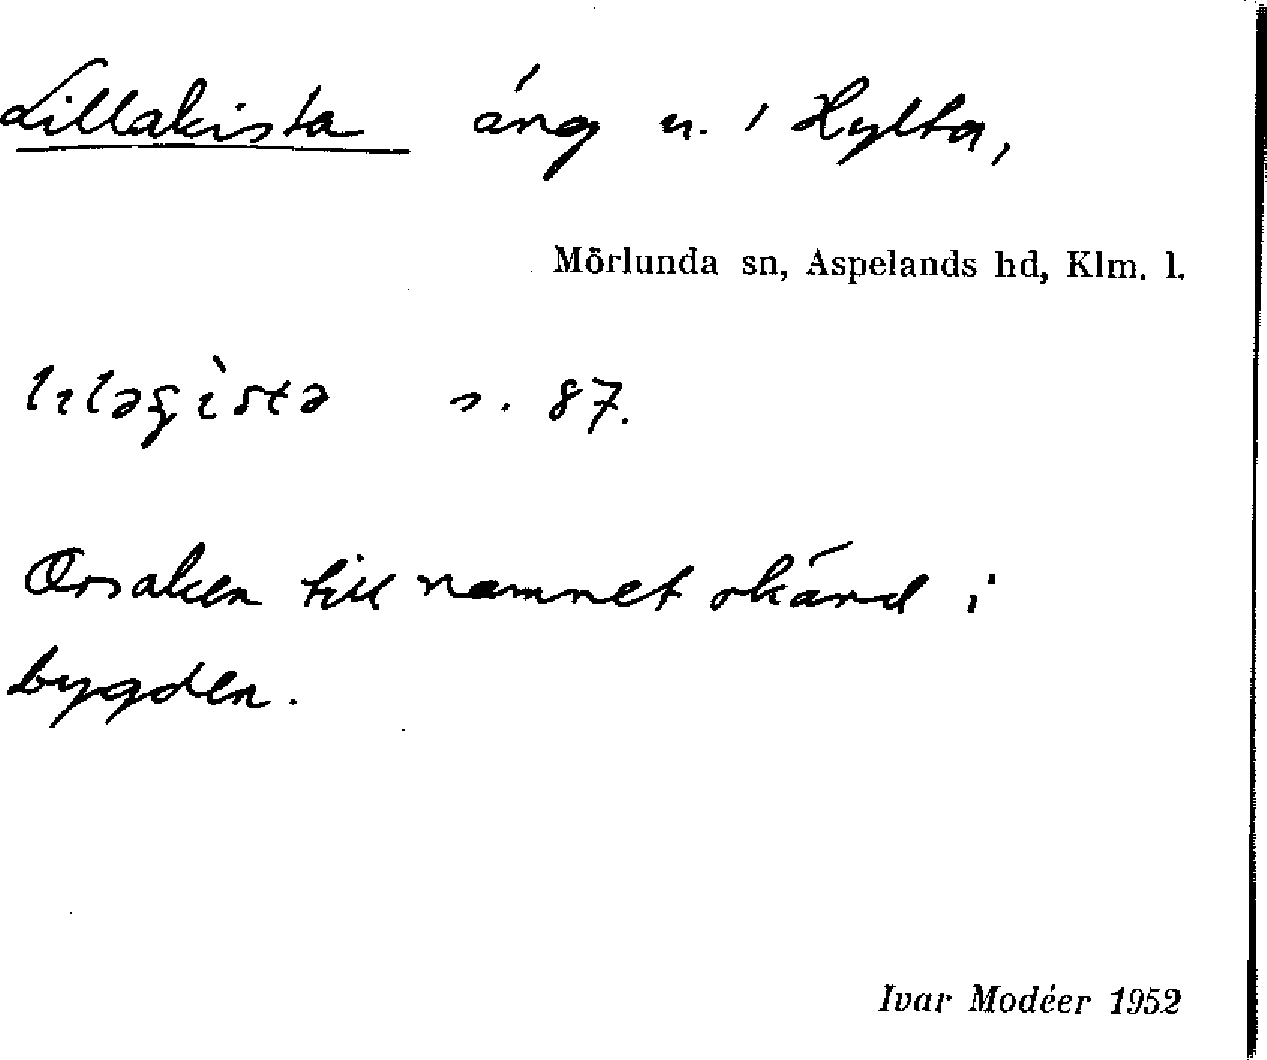 Lillakista äng n. 1 Hylta,
Mörlunda sn, Aspelands hd, Klm. l.
s. 87.
Orsaken till namnet okänd i
bygden.
Ivar Modéer 1952